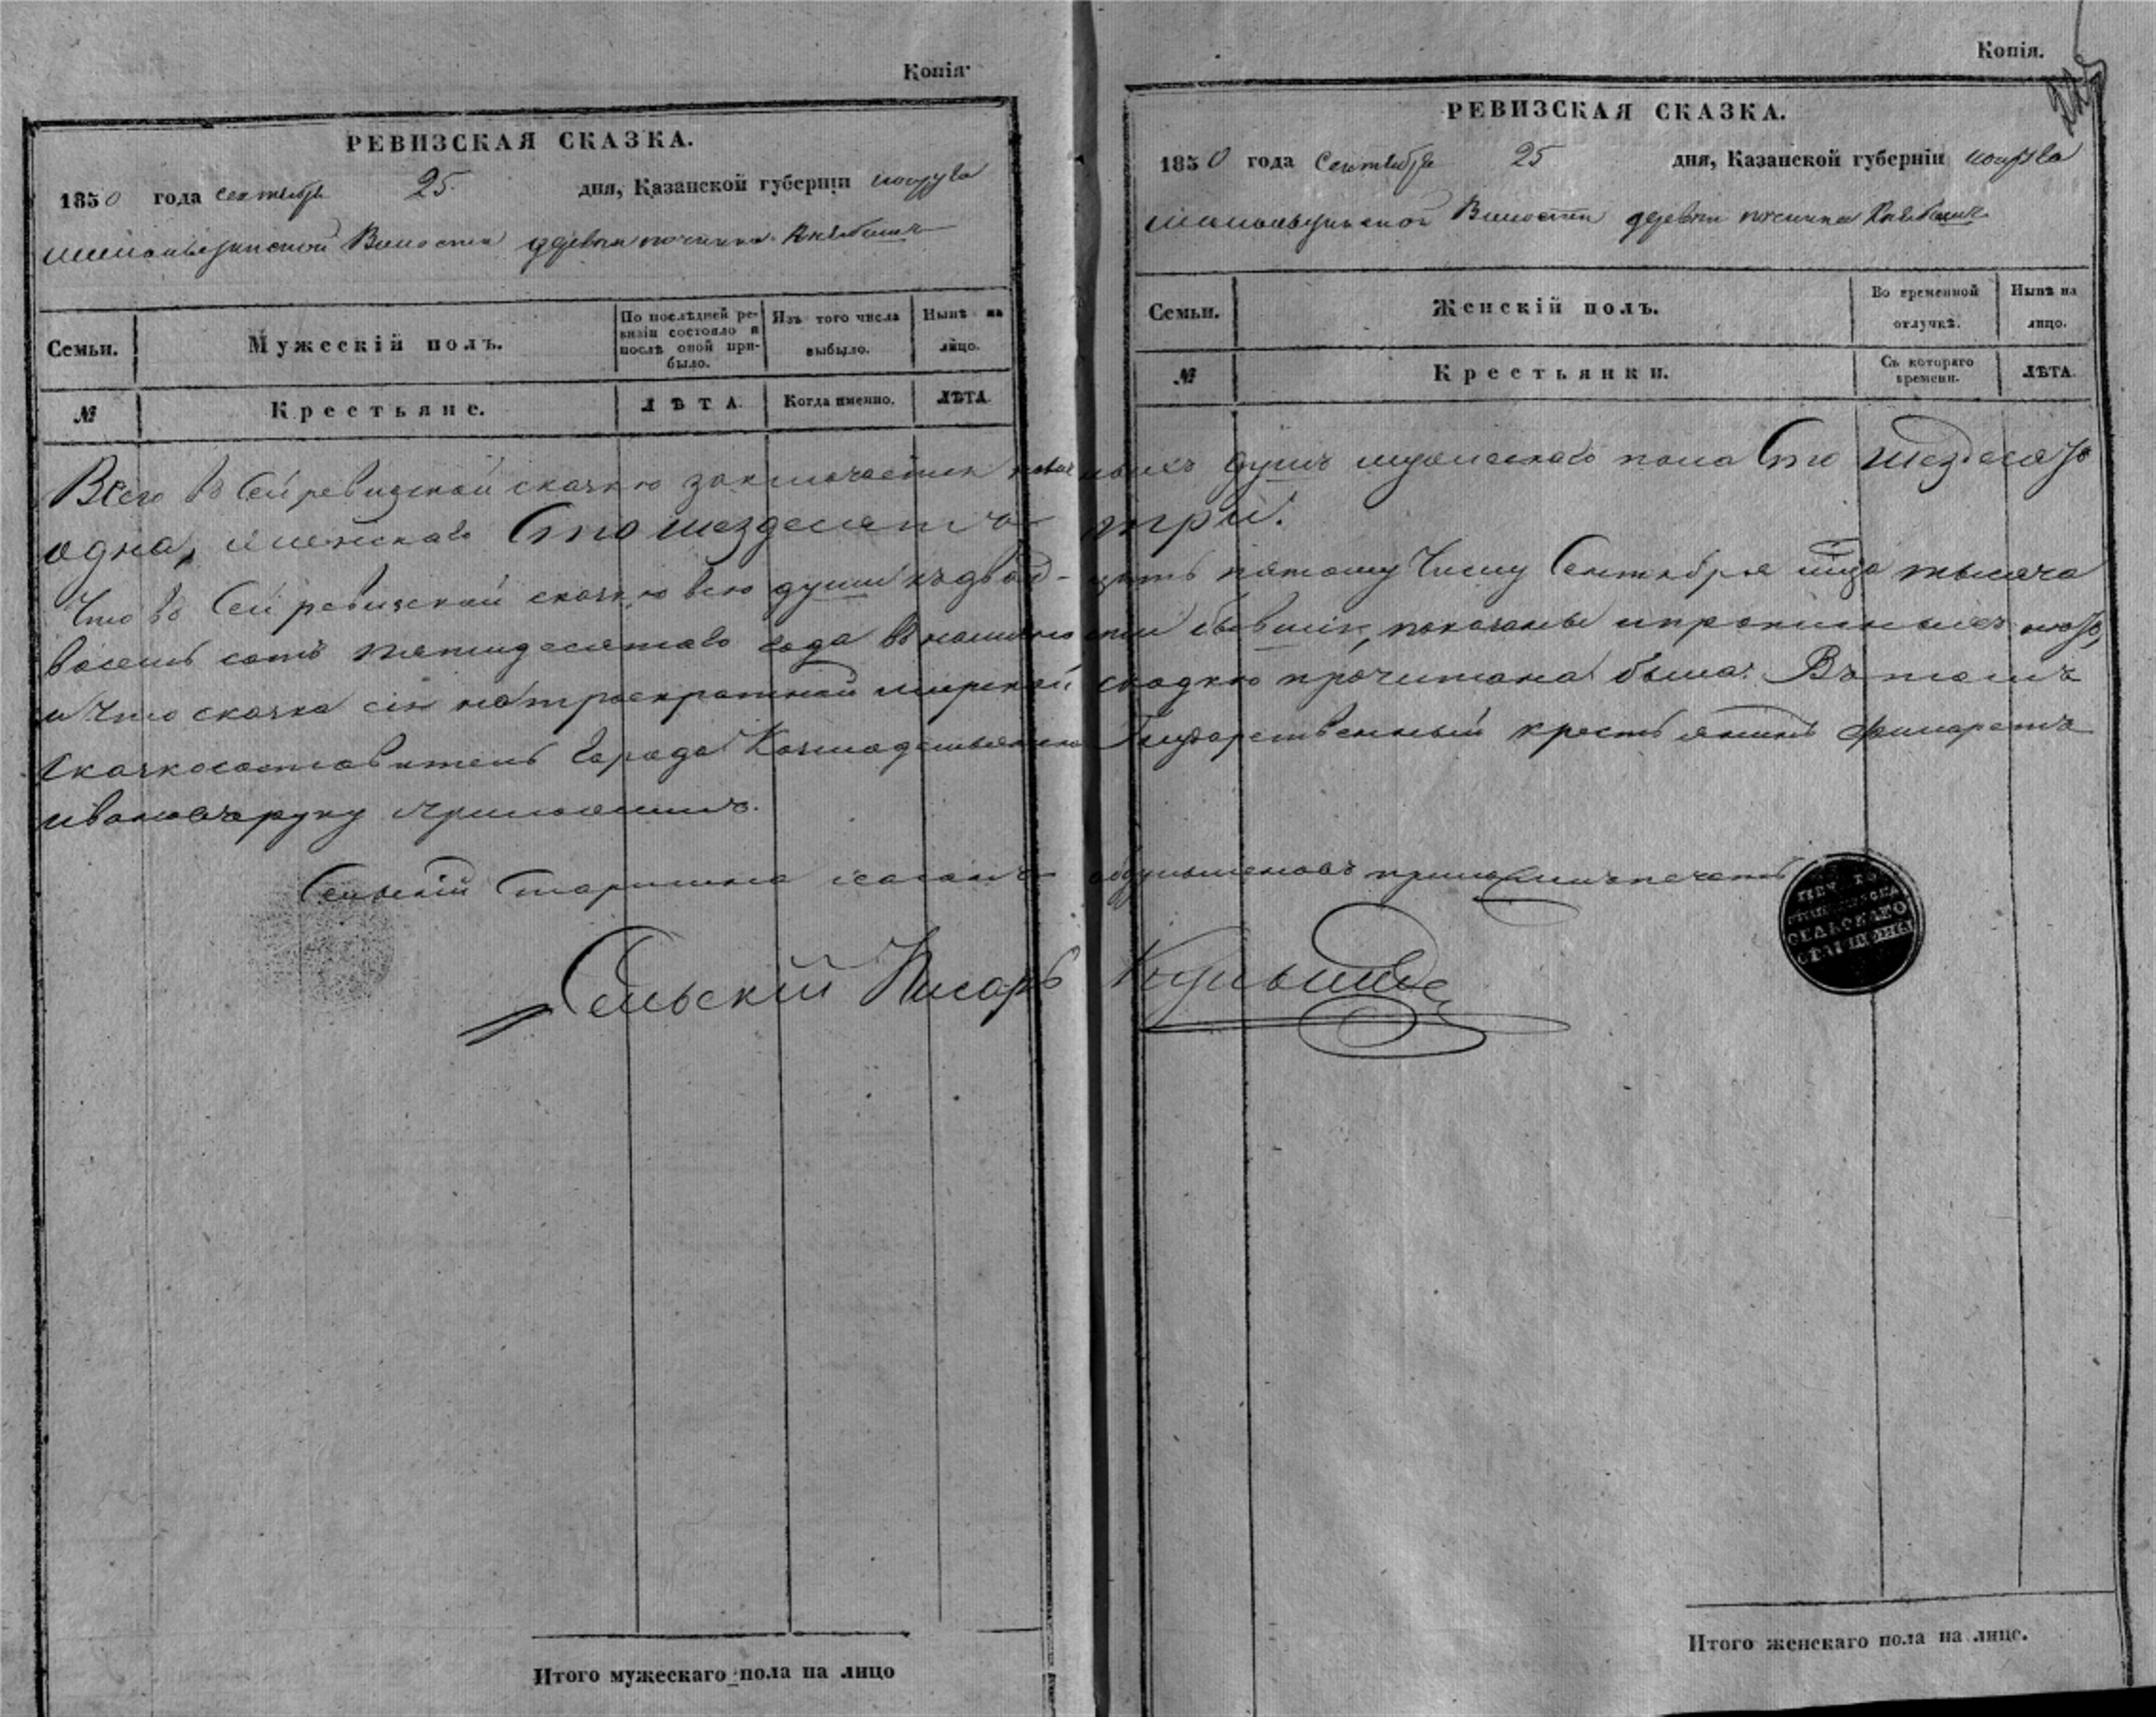 Копія.
РЕВИЗСКАЯ СКАЗКА.
1850 года сентября 25 дня, Казанской губерніи
Волости деревни починка
Семьи.
Мужескій полъ.
По послѣдней ревизіи состояло и послѣ оной прибыло.
Изъ того числа выбыло.
Нынѣ на лицо.
№
Крестьяне.
ЛѢТА.
Когда именно.
ЛѢТА.
Копія.
РЕВИЗСКАЯ СКАЗКА.
1850 года Сентября 25 дня, Казанской губерніи
Волости деревни починка
Семьи.
Женскій полъ.
Во временной отлучкѣ.
Нынѣ на лицо.
№
Крестьянки.
Съ котораго времени.
ЛѢТА.
Всего въ сей ревизской сказкѣ заключается наличныхъ душъ мужескаго пола Сто шездесятъ
одна, женскаго Сто шездесятъ три.
Что въ сей ревизской сказкѣ все души къ двадцать пятому числу Сентября тысяча
восемь сотъ пятидесятаго года въ наличности бывшія, показаны
и что сказка сія на троекратной мирской сходкѣ прочитана была. Въ томъ
сказкосоставитель города Государственный крестьянинъ Филаретъ
Ивановъ руку приложилъ.
Сельскій Старшина приложилъ печать
Сельскій Писарь
СЕЛЬСКАГО
СТАРШИНЫ
Итого мужескаго пола на лицо
Итого женскаго пола на лице.